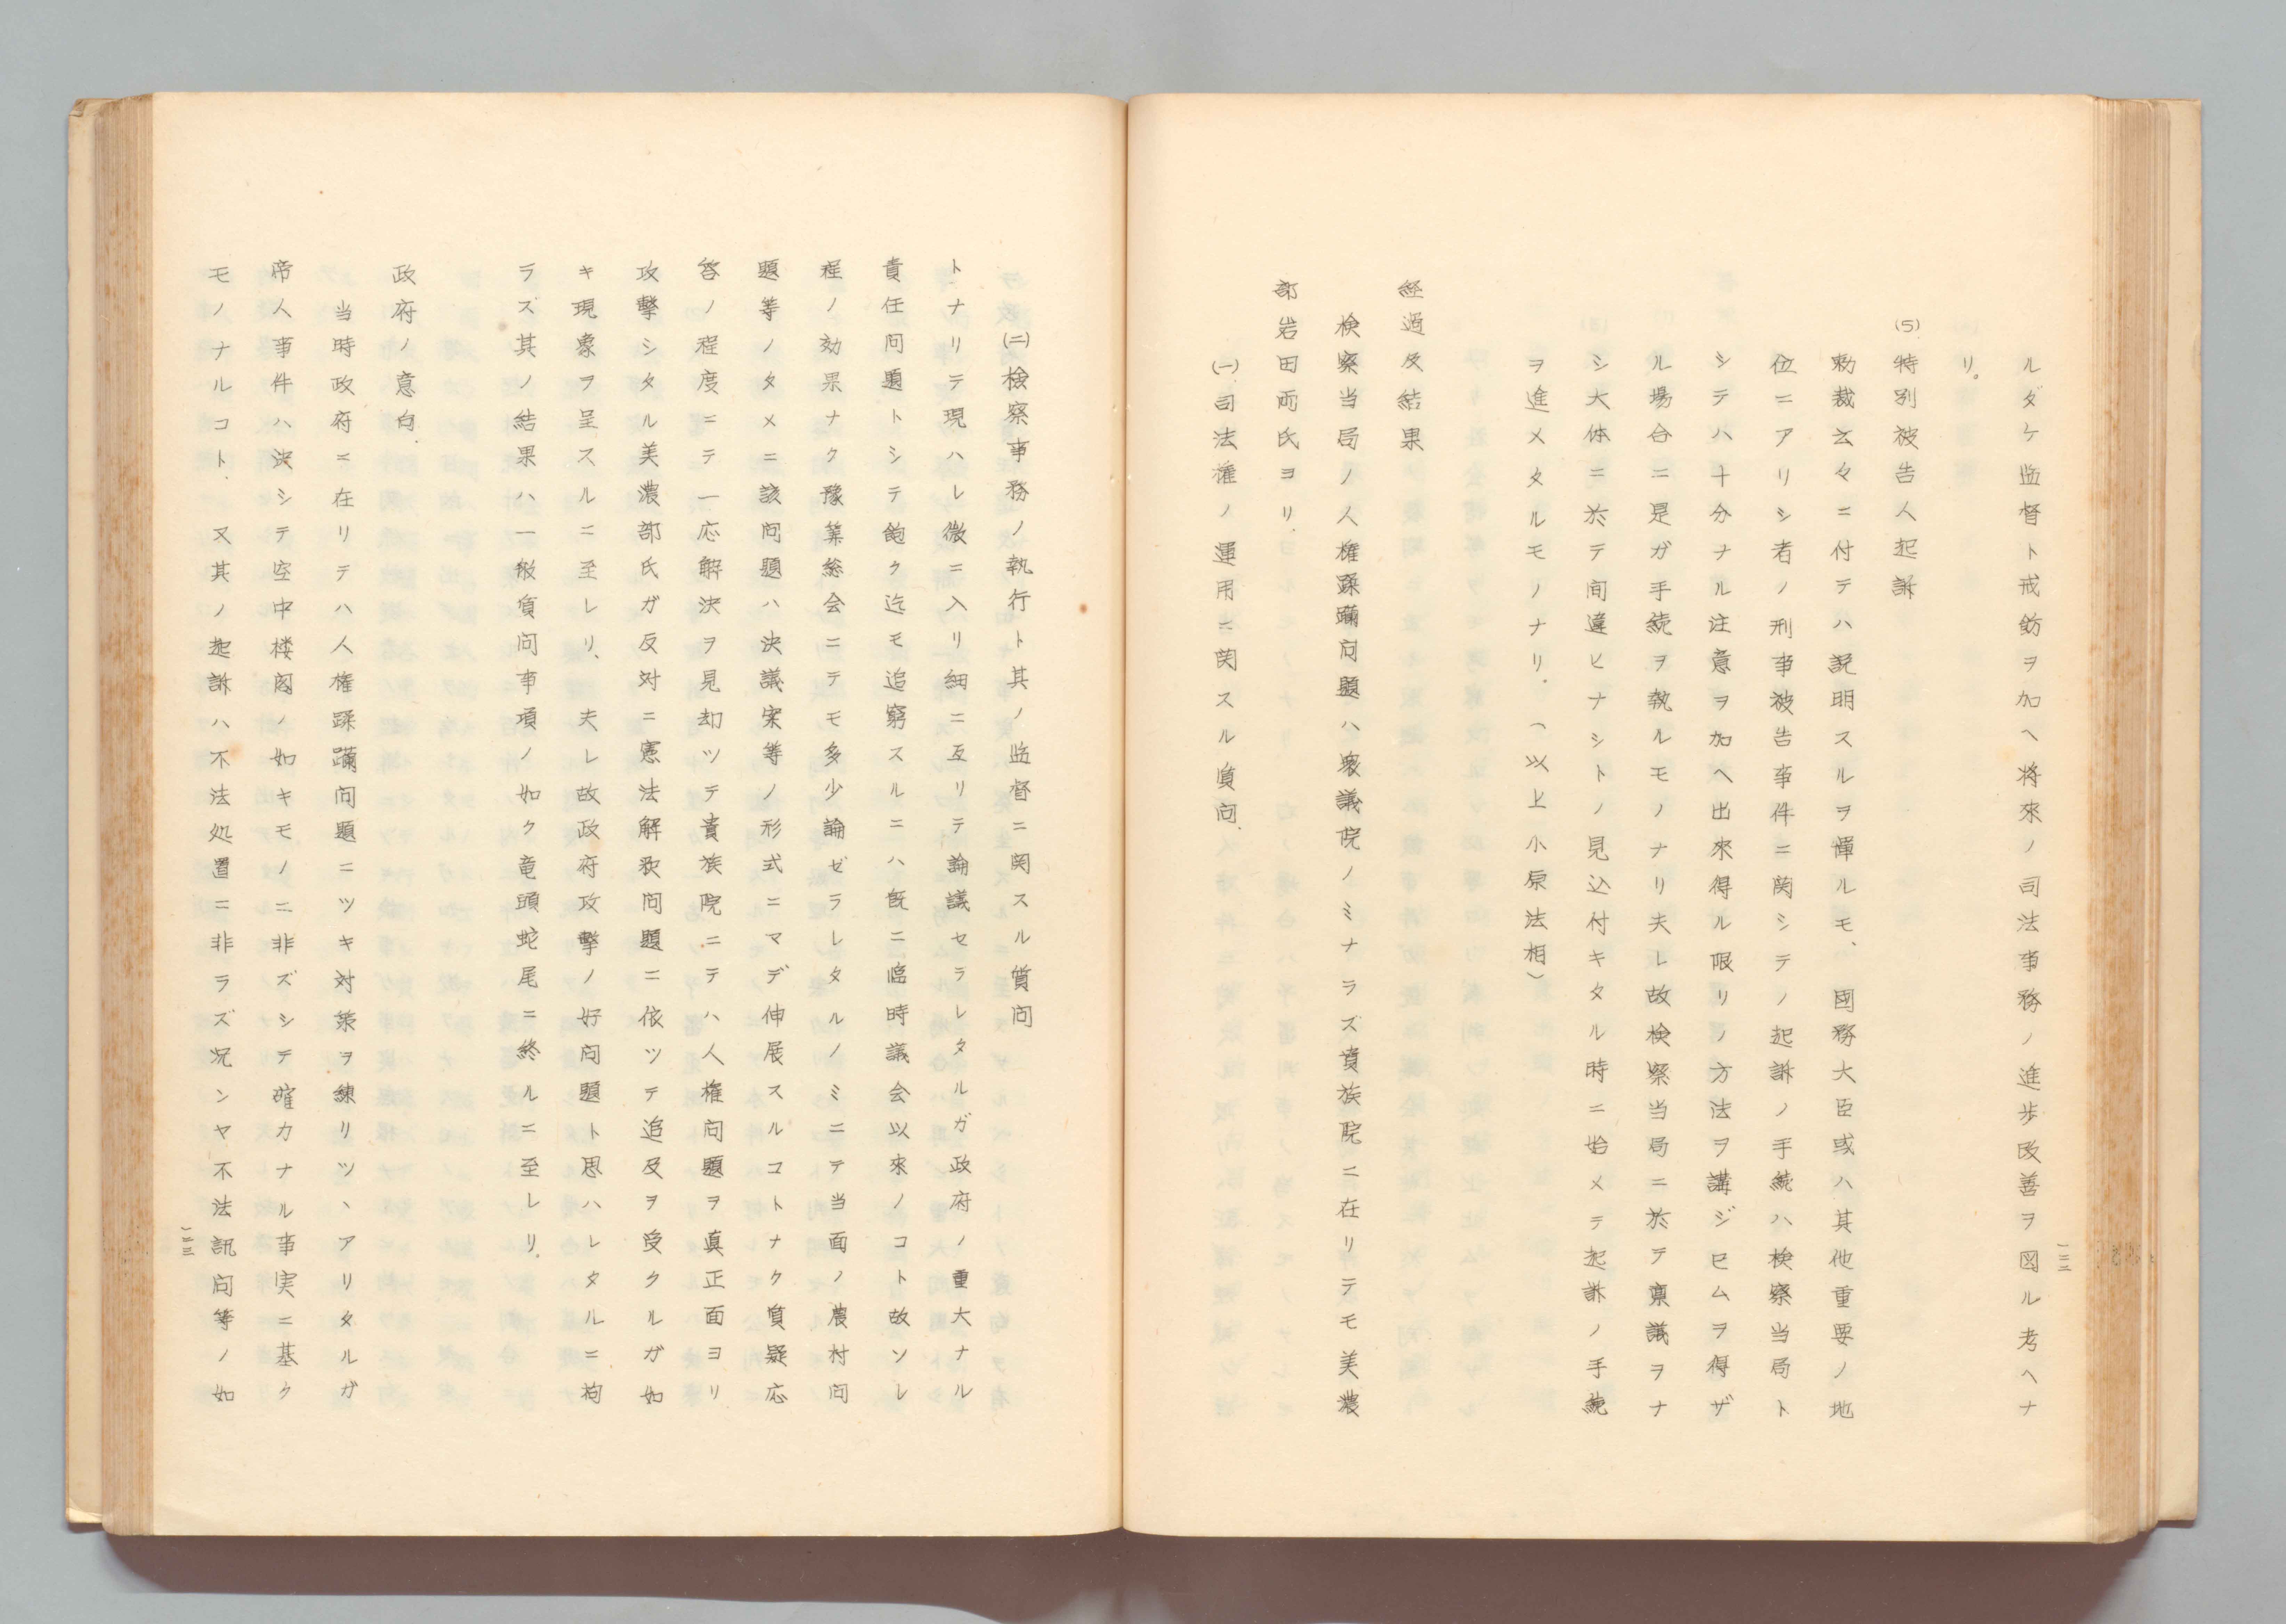 ルダケ監督ト戒飭ヲ加ヘ将來ノ司法事務ノ進歩改善ヲ図ル考ヘナ
リ。
(5)特別被告人起訴
勅裁云々ニ付テハ説明スルヲ憚ルモ、國務大臣或ハ其他重要ノ地
位ニアリシ者ノ刑事被告事件ニ関シテノ起訴ノ手続ハ検察当局ト
シテハ十分ナル注意ヲ加ヘ出來得ル限リノ方法ヲ講ジセムヲ得ザ
ル場合ニ是ガ手続ヲ執ルモノナリ夫レ故検察当局ニ於テ稟議ヲナ
シ大体ニ於テ間違ヒナシトノ見込付キタル時ニ始メテ起訴ノ手続
ヲ進メタルモノナリ。(以上小原法相)
経過及結果
検察当局ノ人権蹂躙問題ハ衆議院ノミナラズ貴族院ニ在リテモ美濃
部岩田両氏ヨリ、
(一)、司法権ノ運用ニ関スル質問、
一二二
(二)検察事務ノ執行ト其ノ監督ニ関スル質問
トナリテ現ハレ微ニ入リ細ニ亙リテ論議セラレタルガ政府ノ重大ナル
責任問題トシテ飽ク迄モ追窮スルニハ既ニ臨時議会以來ノコト故ソレ
程ノ効果ナク豫算総会ニテモ多少論ゼラレタルノミニテ当面ノ農村問
題等ノタメニ該問題ハ決議案等ノ形式ニマデ伸展スルコトナク質疑応
答ノ程度ニテ一応解決ヲ見却ツテ貴族院ニテハ人権問題ヲ真正面ヨリ
攻撃シタル美濃部氏ガ反対ニ憲法解釈問題ニ依ツテ追及ヲ受クルガ如
キ現象ヲ呈スルニ至レリ、夫レ故政府攻撃ノ好問題ト思ハレタルニ拘
ラズ其ノ結果ハ一般質問事項ノ如ク竜頭蛇尾ニ終ルニ至レリ。
政府ノ意向、
当時政府ニ在リテハ人権蹂躙問題ニツキ対策ヲ練リツヽアリタルガ
帝人事件ハ決シテ空中楼閣ノ如キモノニ非ズシテ確カナル事実ニ基ク
モノナルコト、又其ノ起訴ハ不法処置ニ非ラズ況ンヤ不法訊問等ノ如
一二三